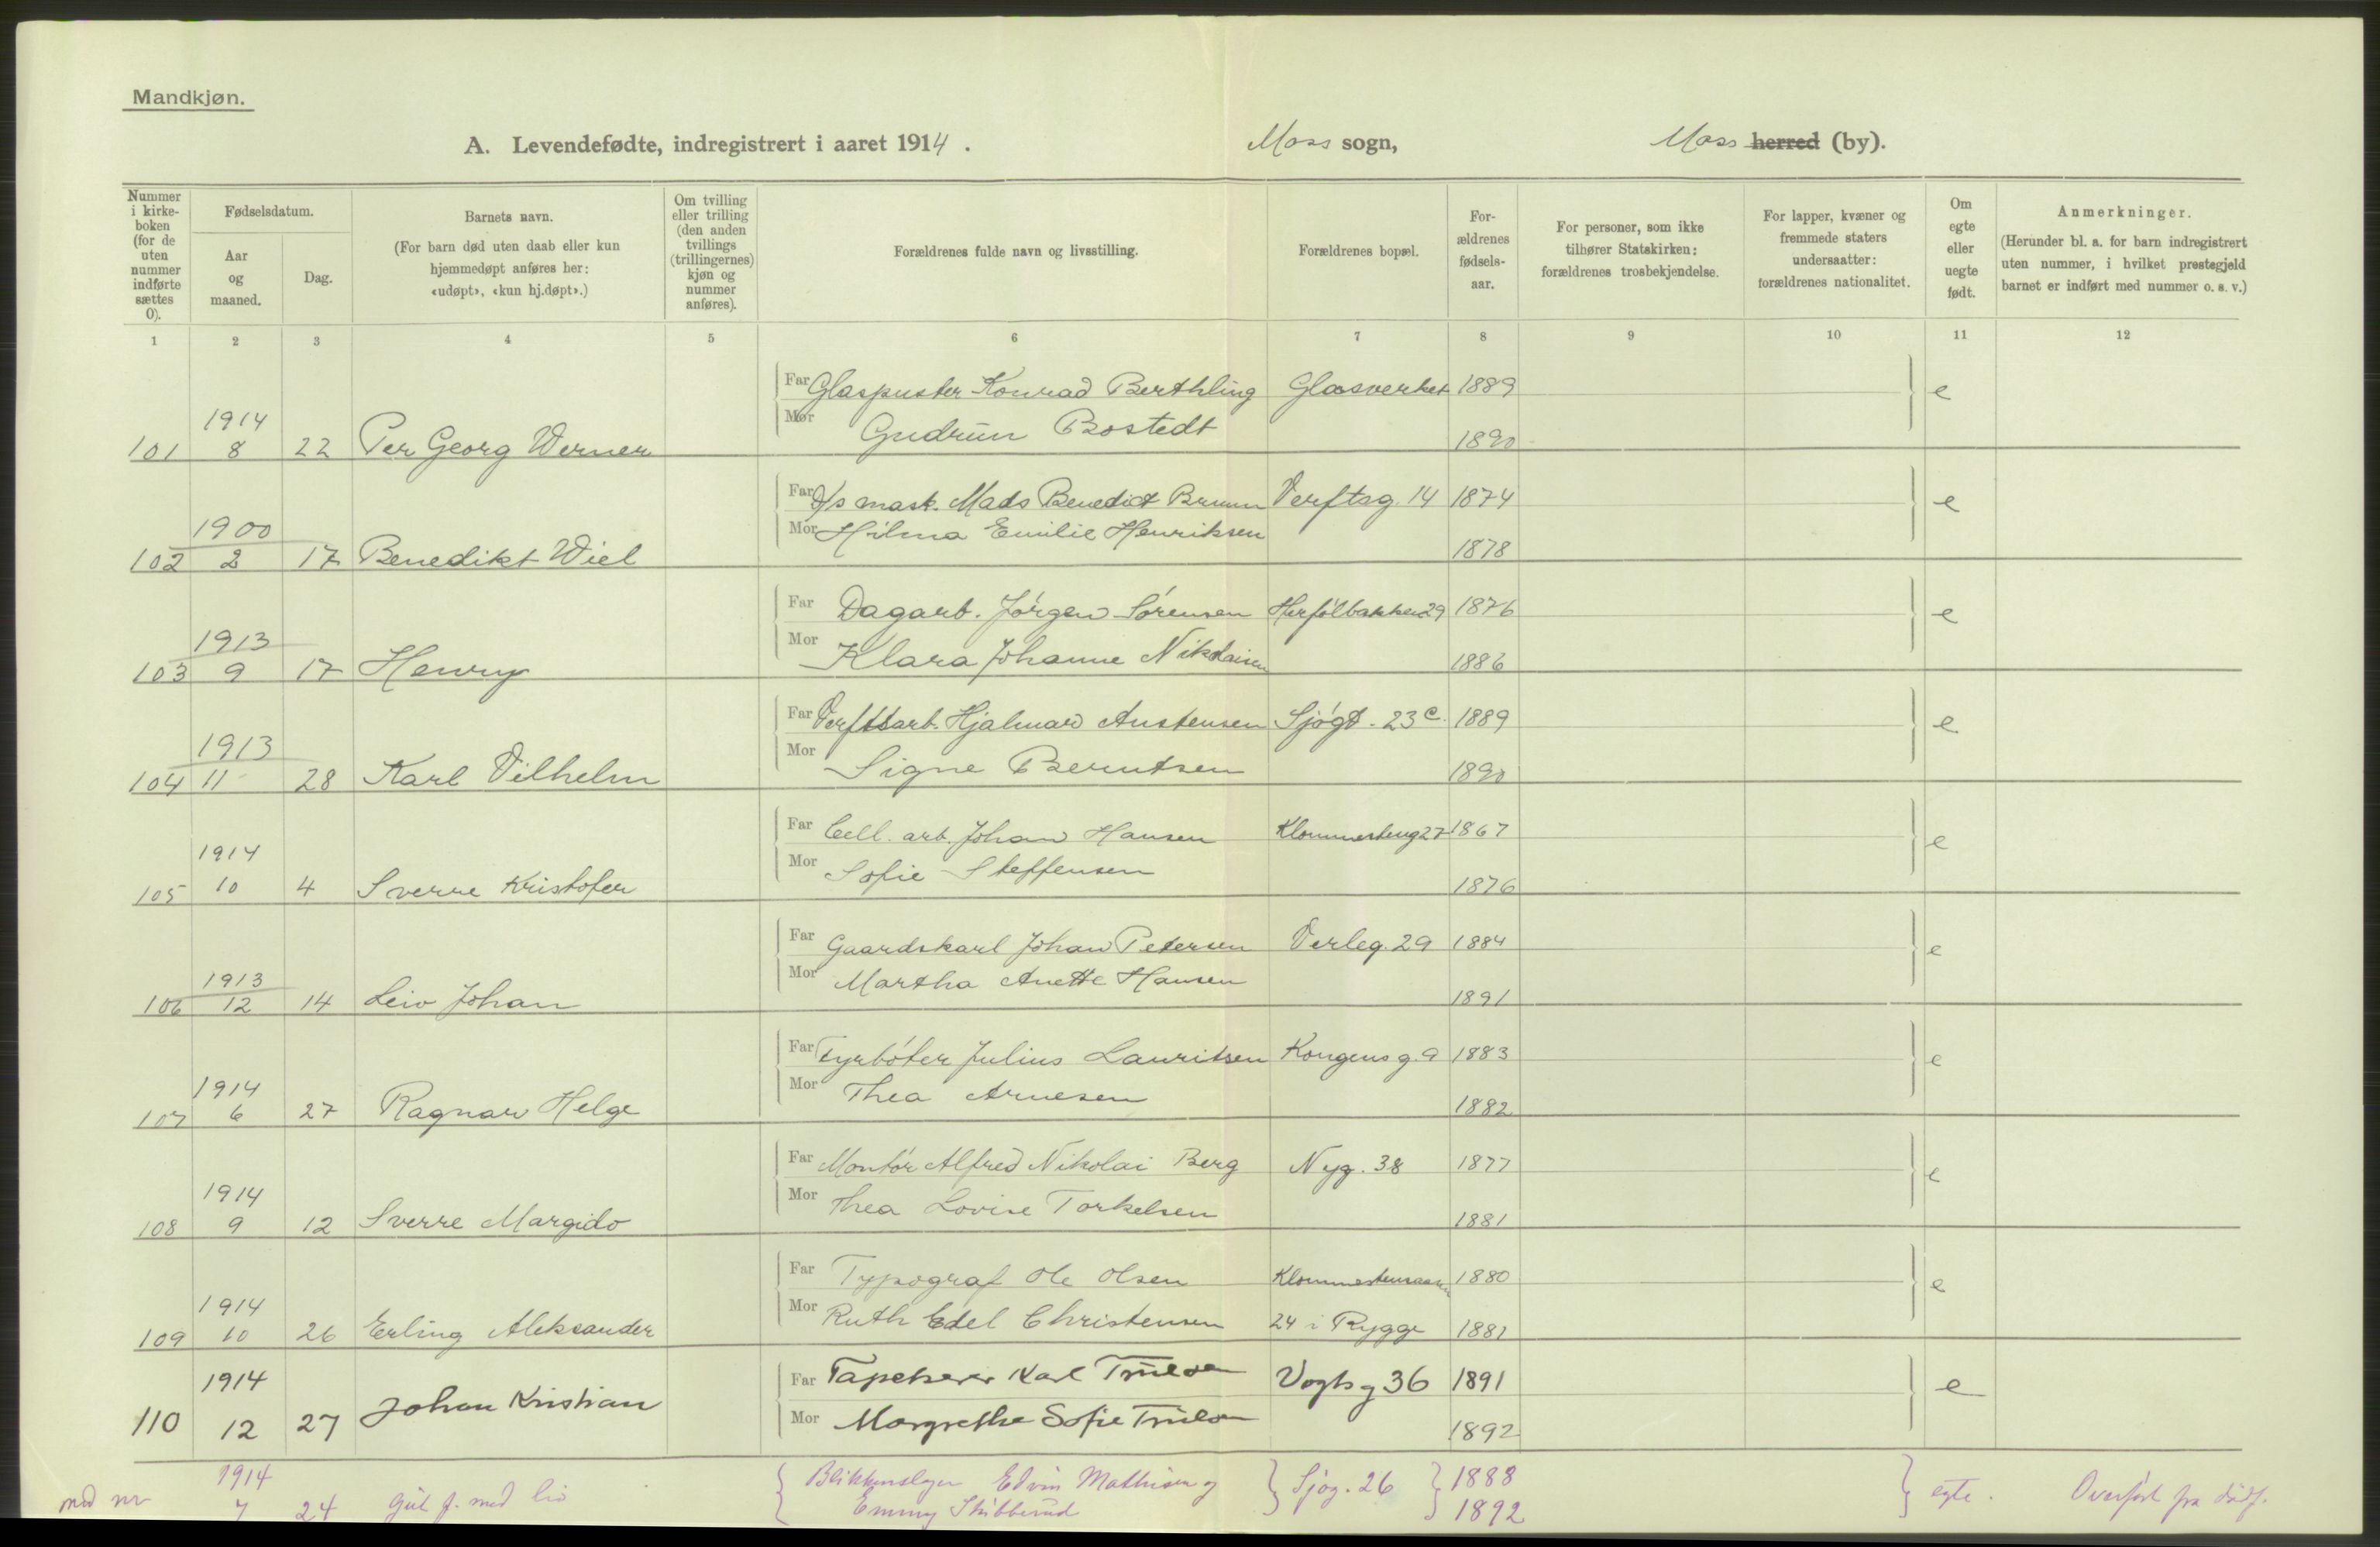 Mandkjøn.
A. Levendefødte, indregistrert i aaret 1914.
Moss sogn,
Moss herred (by).
Nummer i kirke-boken (for de uten nummer indførte sættes 0).
Fødselsdatum.
Aar og maaned.
Dag.
Barnets navn.
(For barn død uten daab eller kun hjemmedøpt anføres her: «udøpt», «kun hj.døpt».)
Om tvilling eller trilling (den anden tvillings (trillingernes) kjøn og nummer anføres).
Forældrenes fulde navn og livsstilling.
Forældrenes bopæl.
For-ældrenes fødsels-aar.
For personer, som ikke tilhører Statskirken: forældrenes trosbekjendelse.
For lapper, kvæner og fremmede staters undersaatter: forældrenes nationalitet.
Om egte eller uegte født.
Anmerkninger.
(Herunder bl. a. for barn indregistrert uten nummer, i hvilket prestegjeld barnet er indført med nummer o. s. v.)
1 2 3 4 5 6 7 8 9 10 11 12
Far Glaspuster Konrad Berthling Glasverket 1889 e
Mor Gudrun Bostedt 1890
1914
101 8 22 Per Georg Werner
Far D/s mask. Mads Benedict Bruun Verftsg. 14 1874 e
Mor Hilma Emilie Henriksen 1878
1900
102 2 17 Benedikt Wiel
Far Dagarb. Jörgen Sörensen Herfölbakken 29 1876 e
Mor Klara Johanne Nikolaisen 1886
1913
103 9 17 Henry
Far Verftsarb. Hjalmar Austensen Sjögt. 23 c. 1889 e
Mor Signe Berntsen 1890
1913
104 11 28 Karl Vilhelm
Far Cell. arb. Johan Hansen Klommesteng 27 1867 e
Mor Sofie Steffensen 1876
1914
105 10 4 Sverre Kristofer
Far Gaardskarl Johan Petersen Verleg. 29 1884 e
Mor Martha Anette Hansen 1891
1913
106 12 14 Leiv Johan
Far Fyrböter Julius Lauritsen Kongens g. 9 1883 e
Mor Thea Arnesen 1882
1914
107 6 27 Ragnar Helge
Far Montör Alfred Nikolai Berg Nyg. 38 1877 e
Mor Thea Lovise Torkelsen 1881
1914
108 9 12 Sverre Margido
Far Typograf Ole Olsen 1880 e
Mor Ruth Edel Christensen 24 i Rygge 1881
1914
109 10 26 Erling Aleksander
Far Tapetserer Karl Trulsen Vogts g 36 1891 e
Mor Margrethe Sofie Trulsen 1892
1914
110 12 27 Johan Kristian
1914 Blikkenslager Edvin Mathisen og Sjög. 26 1888
7 24 Gut f. med liv Emmy Skibberud 1892 egte. Overfört fra dödf.